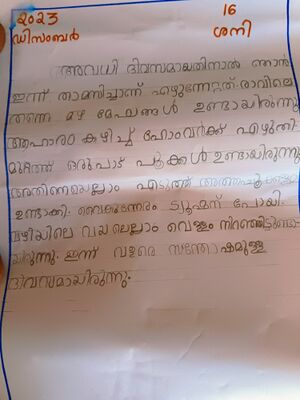 2023 16
ഡിസംബർ ശനി
അവധി ദിവസമായതിനാൽ ഞാൻ
ഇന്ന് താമസിച്ചാണ് എഴുന്നേറ്റത്. രാവിലെ
തന്നെ മഴ മേഘങ്ങൾ ഉണ്ടായിരുന്നു
ആഹാരം കഴിച്ച് ഹോംവർക്ക് എഴുതി.
മുറ്റത്ത് ഒരുപാട് പൂക്കൾ ഉണ്ടായിരുന്നു
എടുത്ത്
ഉണ്ടാക്കി. വൈകുന്നേരം ട്യൂഷന് പോയി.
വഴിയിലെ വയലെല്ലാം വെള്ളം
യിരുന്നു. ഇന്ന് വളരെ സന്തോഷമുള്ള
ദിവസമായിരുന്നു.